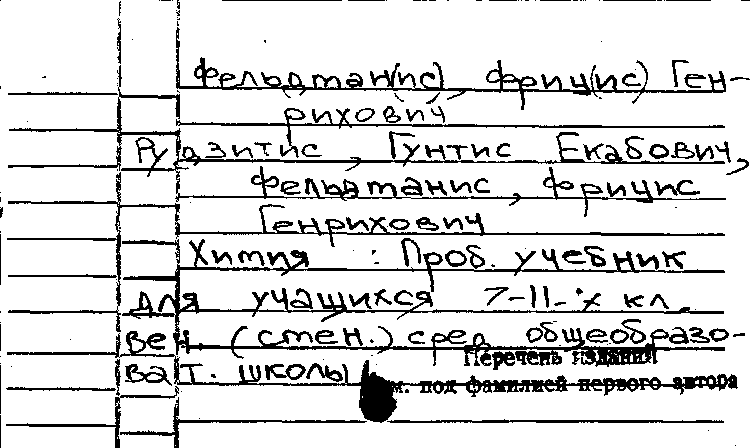 Фельдман(ис), Фриц(ис) Ген-
рихович
Рудзитис, Гунтис Екабович,
Фельдманис, Фрицис
Генрихович
Химия : Проб. учебник
для учащихся 7-11-х кл.
веч. (смен.) сред. общеобразо-
Перечень издания
ват. школы
см. под фамилией первого автора